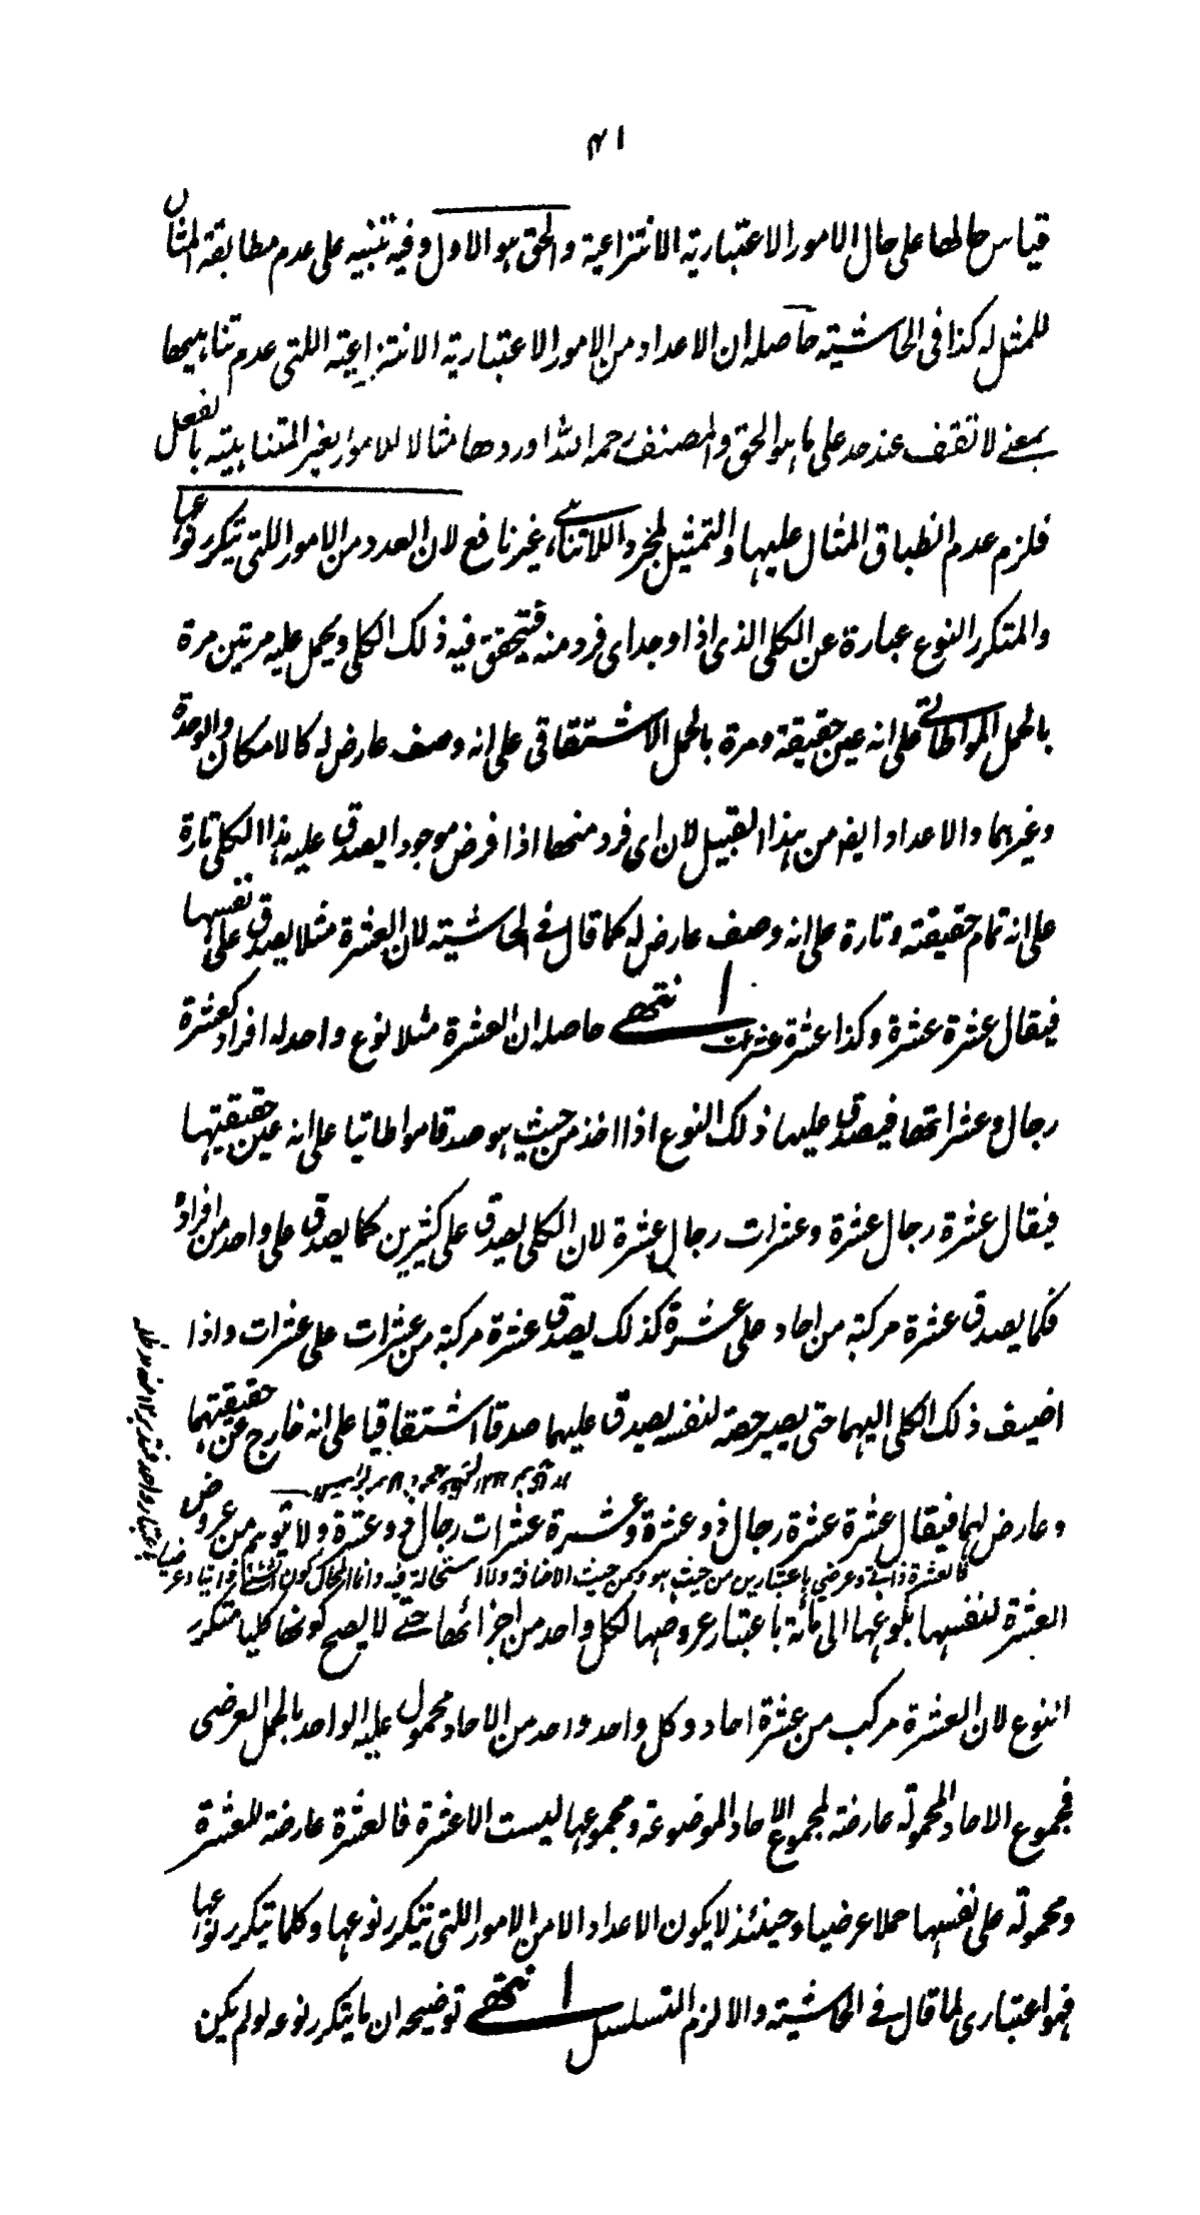 ٤١
قياس حالها على حال الامور الاعتبارية الانتزاعية والحق هو الاول وفيه تنبيه على عدم مطابقة المثال
للمثل له كذا فى الحاشية حاصله ان الاعداد من الامور الاعتبارية الانتزاعية اللتى عدم تناهيها
بمعنے لا تقف عند حد على ما هو الحق والمصنف رحمه الله اوردها مثالا للامور الغير المتناهية بالفعل
فلزم عدم انطباق المثال عليها والتمثيل لمجرد اللاتناهے غير نافع لان العدد من الامور اللتى يتكرر نوعها
والمتكرر النوع عبارة عن الكلى الذى اذا وجد اى فرد منه فيتحقق فيه ذلك الكلى ويحمل عليه مرتين مرة
بالحمل المواطاتے على انه عين حقيقة ومرة بالحمل الاشتقاقى على انه وصف عارض له كالامكان والوحدة
وغيرهما والاعداد ايضا من هذا القبيل لان اى فرد منها اذا فرض موجودا يصدق عليه هذا الكلى تارة
على انه تمام حقيقته وتارة على انه وصف عارض له كما قال فے الحاشية لان العشرة مثلا يصدق على نفسها
فيقال عشرة عشرة وكذا عشرة عشرات انتهے حاصله ان العشرة مثلا نوع واحد له افراد كعشرة
رجال وعشراتها فيصدق عليها ذلك النوع اذا اخذ من حيث هو صدقا مواطاتيا على انه عين حقيقتها
فيقال عشرة رجال عشرة وعشرات رجال عشرة لان الكلى يصدق على كثيرين كما يصدق على واحد من افراده
فكما يصدق عشرة مركبة من احاد على عشرة كذلك يصدق عشرة مركبة من عشرات على عشرات واذا
اضيف ذلك الكلى اليهما حتى يصير حصة لنفسه يصدق عليهما صدقا اشتقاقيا على انه خارج عن حقيقتهما
وعارض لهما فيقال عشرة عشرة رجال ذو عشرة وعشرة عشرات رجال ذو عشرة ولا توهم من عروض
فالعشرة ذاتے وعرضى باعتبارين من حيث هو ومن حيث الاضافة ولا استحالة فيه وانما المحال كون الشئ ذاتيا وعرضيا
باعتبار واحد فتدبر
العشرة لنفسها بلوغها الى مائة باعتبار عروضها لكل واحد من اجزائها حتے لا يصح كونها كليا متكرر
النوع لان العشرة مركب من عشرة احاد وكل واحد واحد من الاحاد محمول عليه الواحد بالحمل العرضى
فمجموع الاحاد المحمولة عارضة لمجموع الاحاد الموضوعة ومجموعها ليست الا عشرة فالعشرة عارضة للعشرة
ومحمولة على نفسها حملا عرضيا وحينئذ لا يكون الاعداد الا من الامور اللتى يتكرر نوعها وكلما يتكرر نوعها
فهو اعتبارى لما قال فے الحاشية والا لزم التسلسل انتهے توضيحه ان ما يتكرر نوعه لو لم يكن